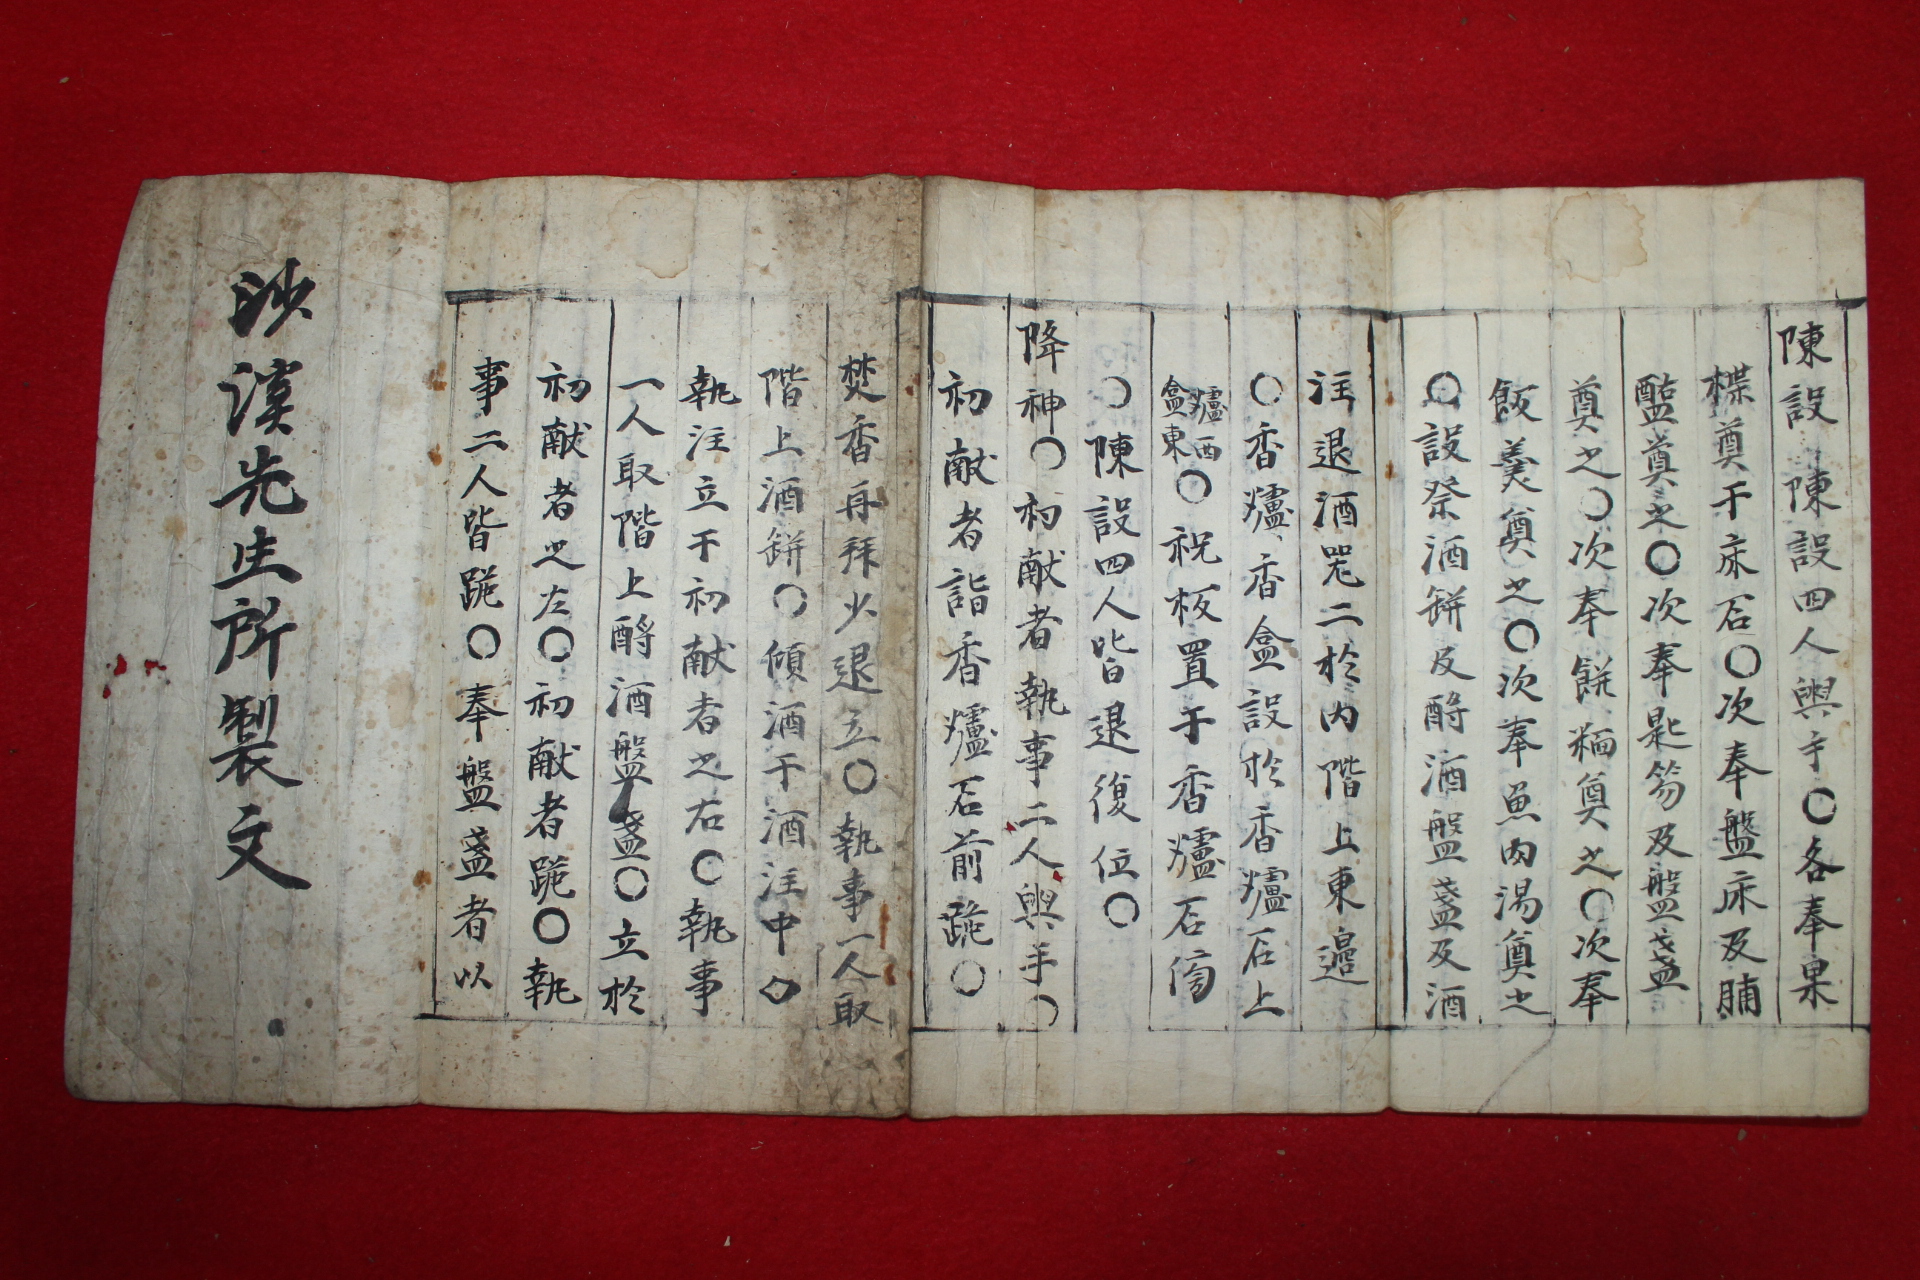 陳設 陳設四人興手〇各奉果
楪奠于床石〇次奉盤床及脯
醢奠之〇次奉匙笏及盤盞
奠之〇次奉餠糆奠之〇次奉
飯羹奠之〇次奉魚肉湯奠之
〇設祭酒餠及酹酒盤盞及酒
注退酒器二於內階上東邊
〇香爐香盒設於香爐石上
爐西盒東〇祝板置于香爐石傍
〇陳設四人皆退復位〇
降神〇初献者執事二人興手〇
初献者詣香爐石前跪〇
焚香再拜少退立〇執事一人取
階上酒餠〇傾酒于酒注中〇
執注立于初献者之右〇執事
一人取階上酹酒盤盞〇立於
初献者之左〇初献者跪〇執
事二人皆跪〇奉盤盞者以
沙溪先生所製文